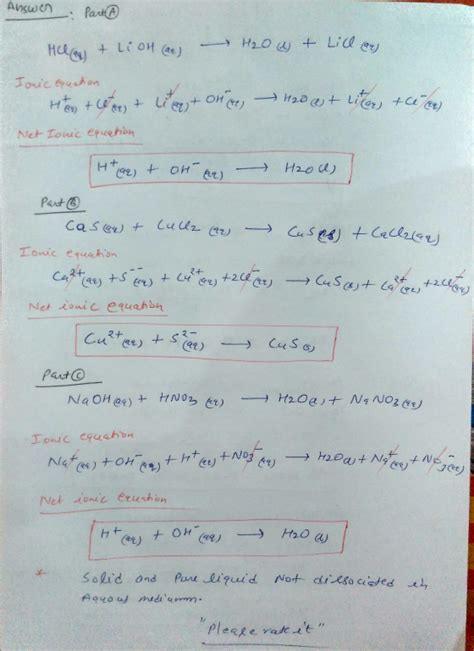 Answer : Part Ⓐ
HCl(aq) + LiOH (aq) → H2O (l) + LiCl (aq)
Ionic Equation
H⁺(aq) + Cl⁻(aq) + Li⁺(aq) + OH⁻(aq) → H2O(l) + Li⁺(aq) + Cl⁻(aq)
Net Ionic equation
H⁺(aq) + OH⁻(aq) → H2O(l)
Part Ⓑ
CaS(aq) + CuCl2 (aq) → CuS(s) + CaCl2(aq)
Ionic equation
Ca²⁺(aq) + S⁻⁻(aq) + Cu²⁺(aq) + 2Cl⁻(aq) → CuS(s) + Ca²⁺(aq) + 2Cl⁻(aq)
Net ionic equation
Cu²⁺(aq) + S²⁻(aq) → CuS(s)
Part Ⓒ
NaOH(aq) + HNO3 (aq) → H2O(l) + NaNO3(aq)
Ionic equation
Na⁺(aq) + OH⁻(aq) + H⁺(aq) + NO3⁻(aq) → H2O(l) + Na⁺(aq) + NO3⁻(aq)
Net ionic equation
H⁺(aq) + OH⁻(aq) → H2O(l)
* Solid and Pure liquid Not dissociated in
Aquous mediumm.
"Please rate it"